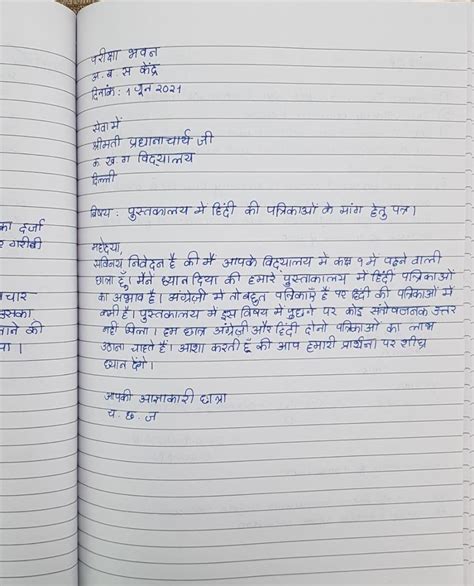 परीक्षा भवन
अ. ब. स केंद्र
दिनांक : 1 जून 2021
सेवा में
श्रीमती प्रधानाचार्य जी
क. ख. ग विद्यालय
दिल्ली
विषय : पुस्तकालय में हिंदी की पत्रिकाओं के मांग हेतु पत्र।
महोदया,
सविनय निवेदन है की मैं आपके विद्यालय में कक्ष १ में पढ़ने वाली
छात्रा हूँ। मैंने ध्यान दिया की हमारे पुस्ताकालय में हिंदी पत्रिकाओं
का अभाव है। अंग्रेजी में तो बहुत पत्रिकाएँ है पर हिंदी की पत्रिकाओं में
कमी है। पुस्तकालय में इस विषय में पुछने पर कोई संतोषजनक उत्तर
नहीं मिला। हम छात्र अंग्रेजी और हिंदी दोनो पत्रिकाओं का लाभ
उठाना चाहते हैं। आशा करती हूँ की आप हमारी प्रार्थना पर शीघ्र
ध्यान देंगे।
आपकी आज्ञाकारी छात्रा
च. छ. ज
का दर्जा
गरीबी
चार
सका
ाने की
ा।